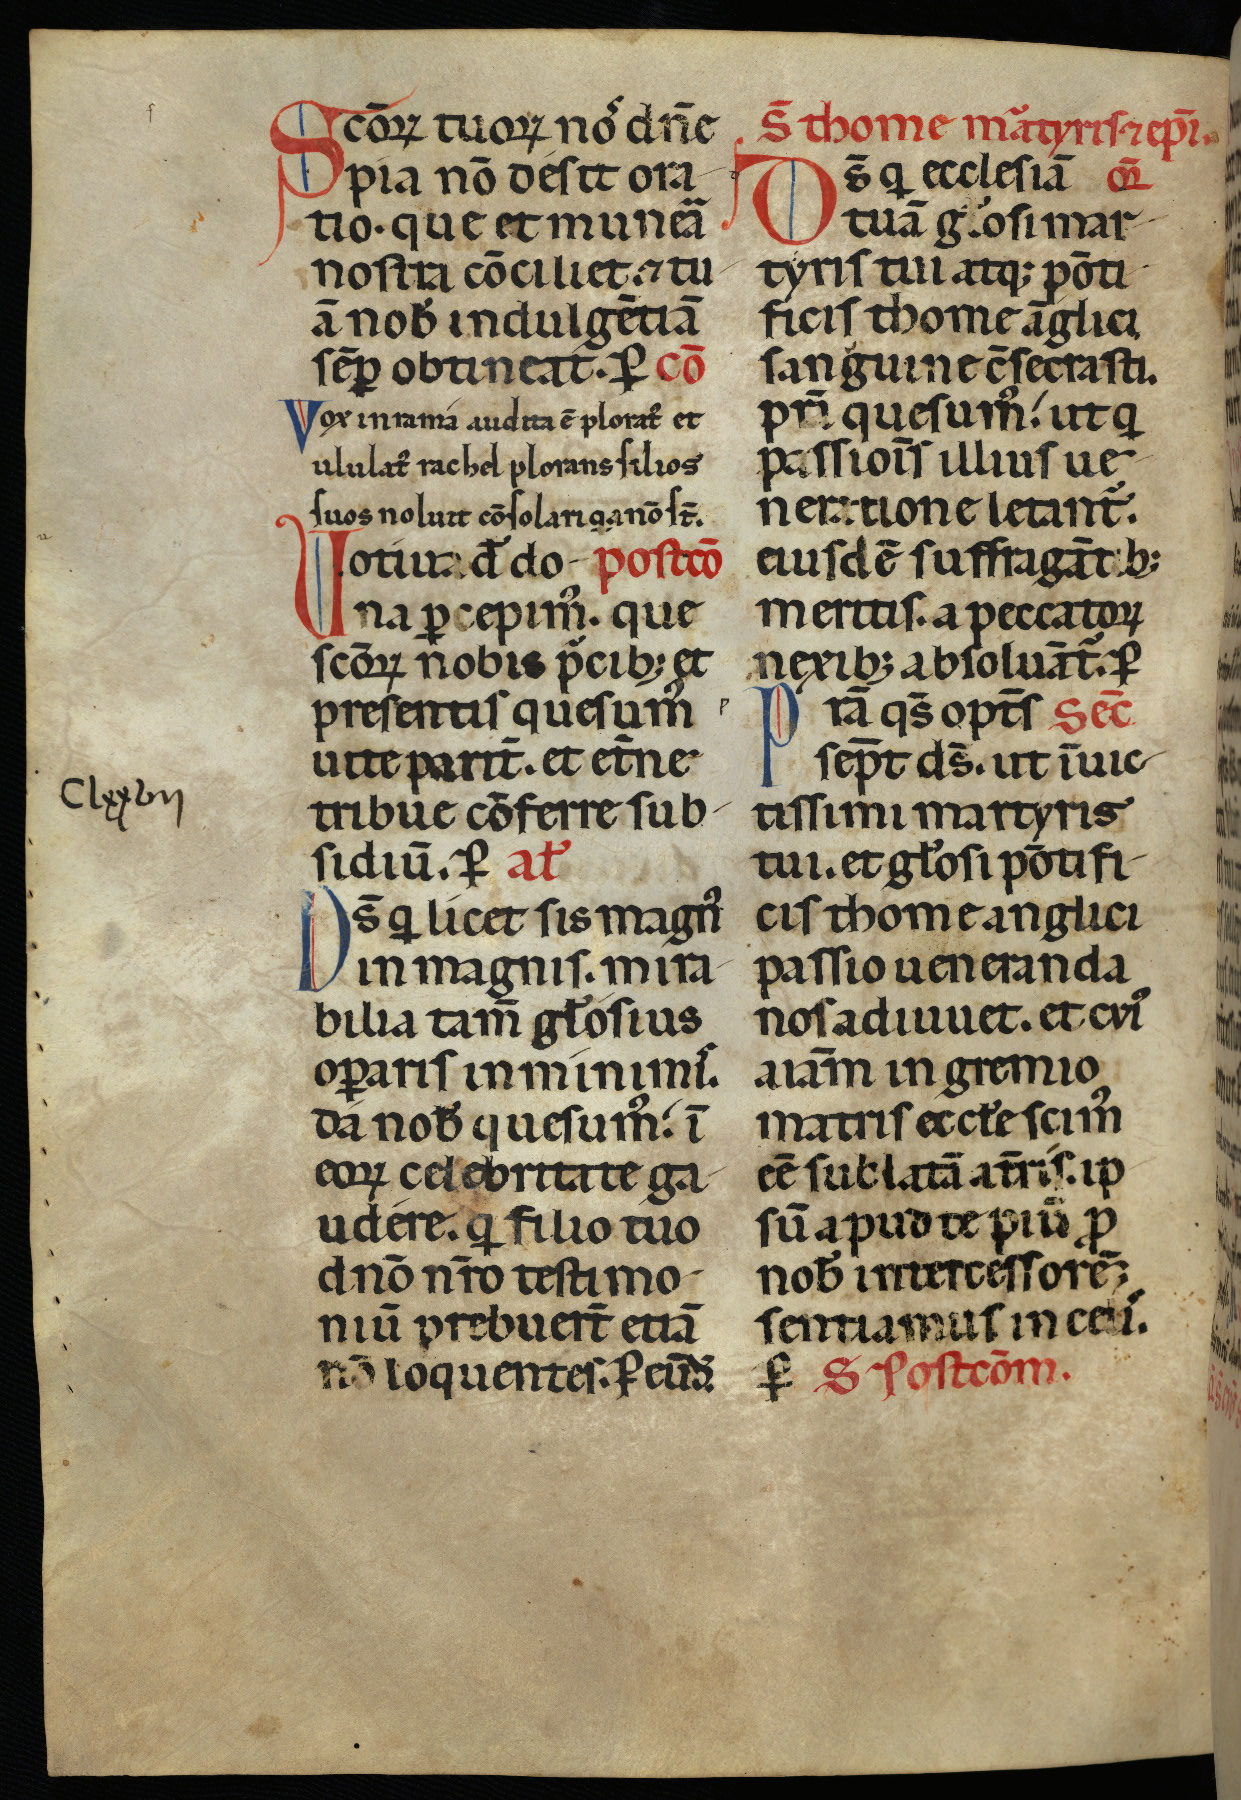 Scōꝝ tuoꝝ nō dn̄e
pia nō desit ora
tio. que et munera
nostra cōciliet. ⁊ tu
ā nob̄ indulgētiā
sēꝑ obtineat. ꝑ cō
Vox in rama audita ē plorat᷒ et
ululat᷒ rachel plorans filios
suos noluit cōsolari q̇a nō st̄.
Uotiua d̄ do postcō
na ꝑcepim᷒. que
scōꝝ nobis p̄cib; et
presentis quesum᷒
uite parit̄. et et̄ne
tribue cōferre sub
sidiū. ꝑ al̄
Ds̄ q licet sis magn᷒
in magnis. mira
bilia tam̄ gl̄osius
oꝑaris in minimis.
da nob̄ quesum᷒. ī
eoꝝ celebritate ga
udere. q filio tuo
dnō nr̄o testimo
niū prebuert̄ etiā
nō loquentes. ꝑ eūd̄.
S̄ thome mr̄atyris ⁊ ep̄i.
Ds̄ q ecclesiā or̄
tuā gl̄osi mar
tyris tui atq; pōti
ficis thome āglici
sanguine c̄secrasti.
pr̄ quesum᷒. ut q
passiois̄ illius ue
neratione letant᷒.
eiusdē suffragāt᷒b;
meritis. a peccatoꝝ
nexib; absoluāt᷒. ꝑ
Prā qs̄ opt̄s Sec̄
sep̄t ds̄. ut īuic
tissimi martyris
tui. et gl̄osi pōtifi
cis thome anglici
passio ueneranda
nos adiuuet. et cui᷒
aiām in gremio
matris eccl̄e scim᷒
eē sublatā at̄ris. ip
sū apud te piū ꝓ
nob̄ intercessorē
sentiamus in celis.
ꝑ S Postcōm.
Clxxvij